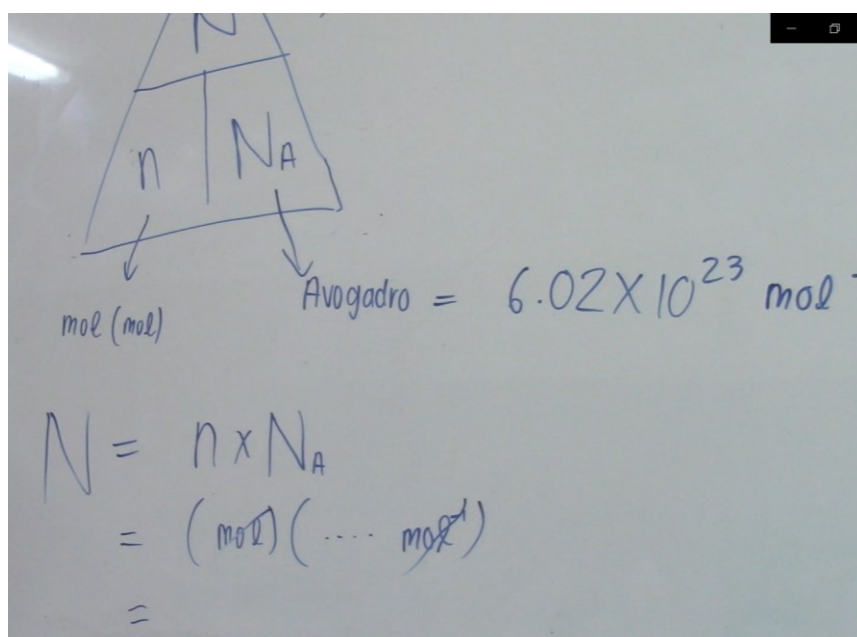 N
n NA
mol (mol)
Avogadro = 6.02 × 10²³ mol⁻
N = n × NA
= (mol) (.... mol⁻¹)
=